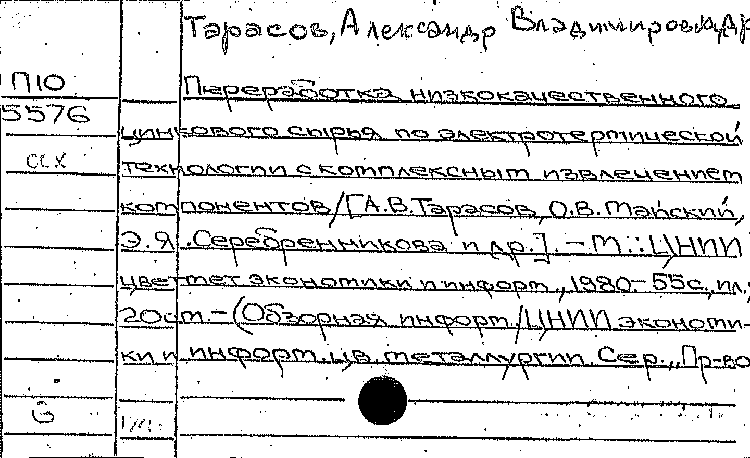 Тарасов, Александр Владимирович, др
П10
5576
Переработка низкокачественного
цинкового сырья по электротермической
технологии с комплексным извлечением
компонентов/[А.В.Тарасов, О.В.Майский,
Э.Я.Серебренникова и др.].-М.:ЦНИИ
цветмет экономики и информ., 1980.-55с., ил.;
20см.-(Обзорная информ./ЦНИИ экономи-
ки и информ. цв. металлургии. Сер., Пр-во